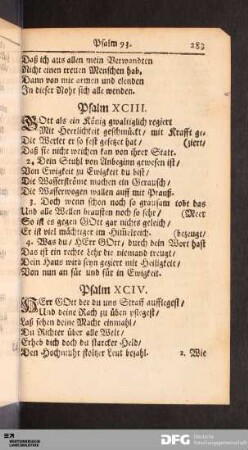 Psalm 93. 283
Daß ich aus allen mein Verwandten
Nicht einen treuen Menschen hab,
Dann von mir armen und elenden
In dieser Noht sich alle wenden.
Psalm XCIII.
GOtt als ein König gwaltiglich regiert
Mit Herrlichkeit geschmückt, mit Krafft ge-
Die Werlet er so fest gesetzet hat, (ziert,
Daß sie nicht weichen kan von ihrer Statt.
2. Dein Stuhl von Anbeginn gewesen ist,
Von Ewigkeit zu Ewigkeit du bist;
Die Wasserströme machen ein Gerausch,
Die Wasserwogen wallen auff mit Prauß.
3. Doch wenn schon noch so grausam tobt das
Und alle Wellen braußten noch so sehr, (Meer
So ist es gegen GOtt gar nichts geleich,
Er ist viel mächtiger im Himmelreich. (bezeugt,
4. Was du, HErr GOtt, durch dein Wort hast
Das ist ein rechte Lehr die niemand treugt,
Dein Haus wird seyn geziert mit Heiligkeit,
Von nun an für und für in Ewigkeit.
Psalm XCIV.
HErr GOtt der du uns Straff aufflegest,
Und deine Rach zu üben pflegest,
Laß sehen deine Macht einmahl,
Du Richter über alle Welt,
Erheb dich doch du starcker Held,
Den Hochmuht stoltzer Leut bezahl. 2. Wie
DFG Deutsche
Forschungsgemeinschaft